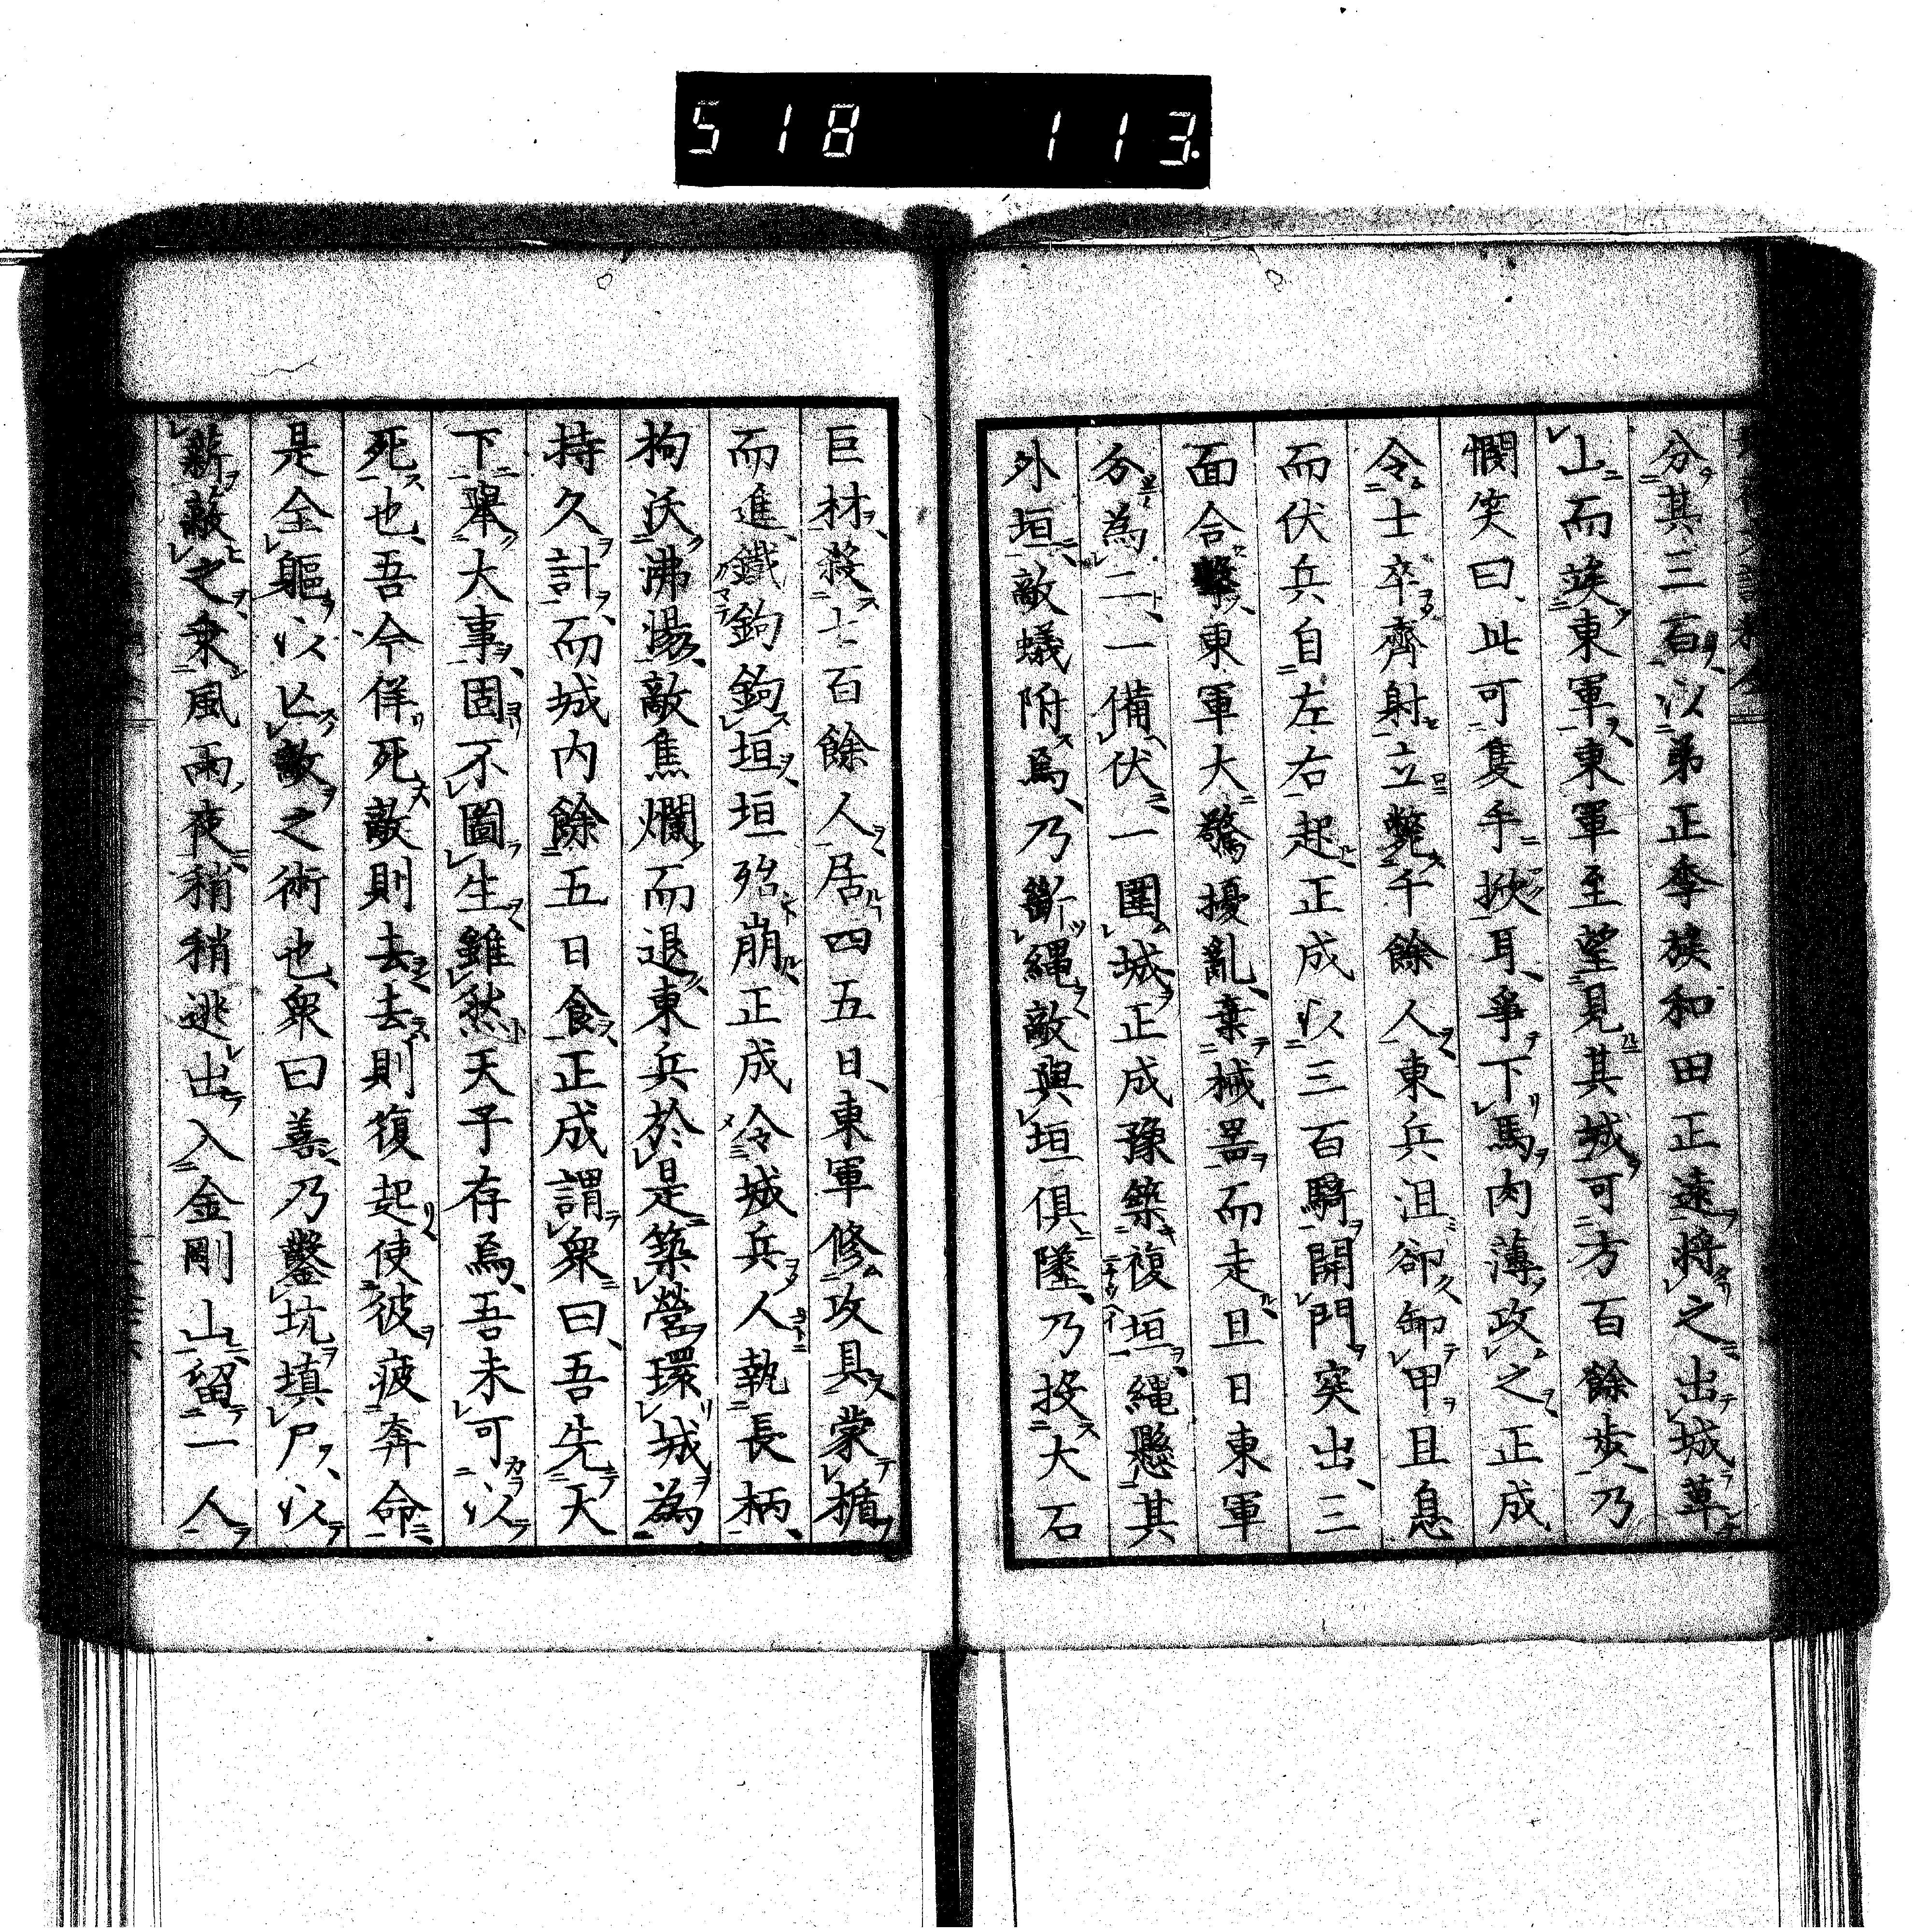 518 113.
分其三百以弟正季族和田正遠將之出城草
山而竢東軍東軍至望見其城可方百餘步乃
憫笑曰此可隻手掀耳爭下馬肉薄攻之正成
令士卒齊射立斃千餘人東兵沮卻卸甲且息
而伏兵自左右起正成以三百騎開門突出三
面合擊東軍大驚擾亂棄械器而走旦日東軍
分為二一備伏一圍城正成豫築複垣繩懸其
外垣敵蟻附焉乃斷繩敵與垣俱墜乃投大石
巨材殺七百餘人居四五日東軍修攻具蒙楯
而進鐵鉤鉤垣垣殆崩正成令城兵人執長柄
杓沃沸湯敵焦爛而退東兵於是築營環城為
持久計而城內餘五日食正成謂衆曰吾先天
下舉大事固不圖生雖然天子存焉吾未可以
死也吾今佯死敵則去去則復起使彼疲奔命
是全軀以亡敵之術也衆曰善乃鑿坑填尸以
薪蔽之乘風雨夜稍稍逃出入金剛山留一人